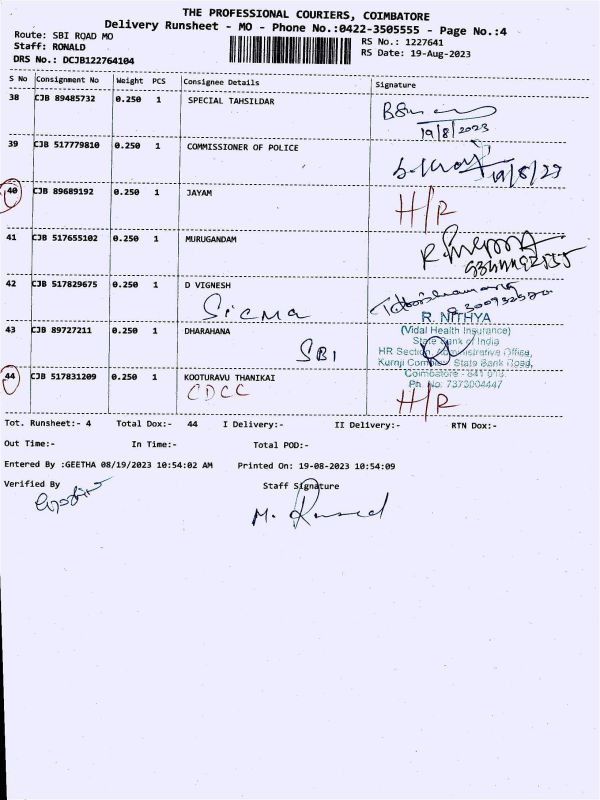 THE PROFESSIONAL COURIERS, COIMBATORE
Delivery Runsheet - MO - Phone No.:0422-3505555 - Page No.:4
Route: SBI ROAD MO
Staff: RONALD
DRS No.: DCJB122764104
RS No.: 1227641
RS Date: 19-Aug-2023
S No Consignment No Weight PCS Consignee Details Signature
38 CJB 89485732 0.250 1 SPECIAL TAHSILDAR
19/8/2023
39 CJB 517779810 0.250 1 COMMISSIONER OF POLICE
19/8/23
40 CJB 89689192 0.250 1 JAYAM H/R
41 CJB 517655102 0.250 1 MURUGANDAM
42 CJB 517829675 0.250 1 D VIGNESH
SIGMA
43 CJB 89727211 0.250 1 DHARAHANA
SBI
R. NITHYA
(Vidal Health Insurance)
State Bank of India
HR Section, Administrative Office,
Kurnji Complex, State Bank Road,
Coimbatore - 641 018.
Ph. No: 7373004447
44 CJB 517831209 0.250 1 KOOTURAVU THANIKAI
CDCC H/R
Tot. Runsheet:- 4 Total Dox:- 44 I Delivery:- II Delivery:- RTN Dox:-
Out Time:- In Time:- Total POD:-
Entered By :GEETHA 08/19/2023 10:54:02 AM Printed On: 19-08-2023 10:54:09
Verified By Staff Signature